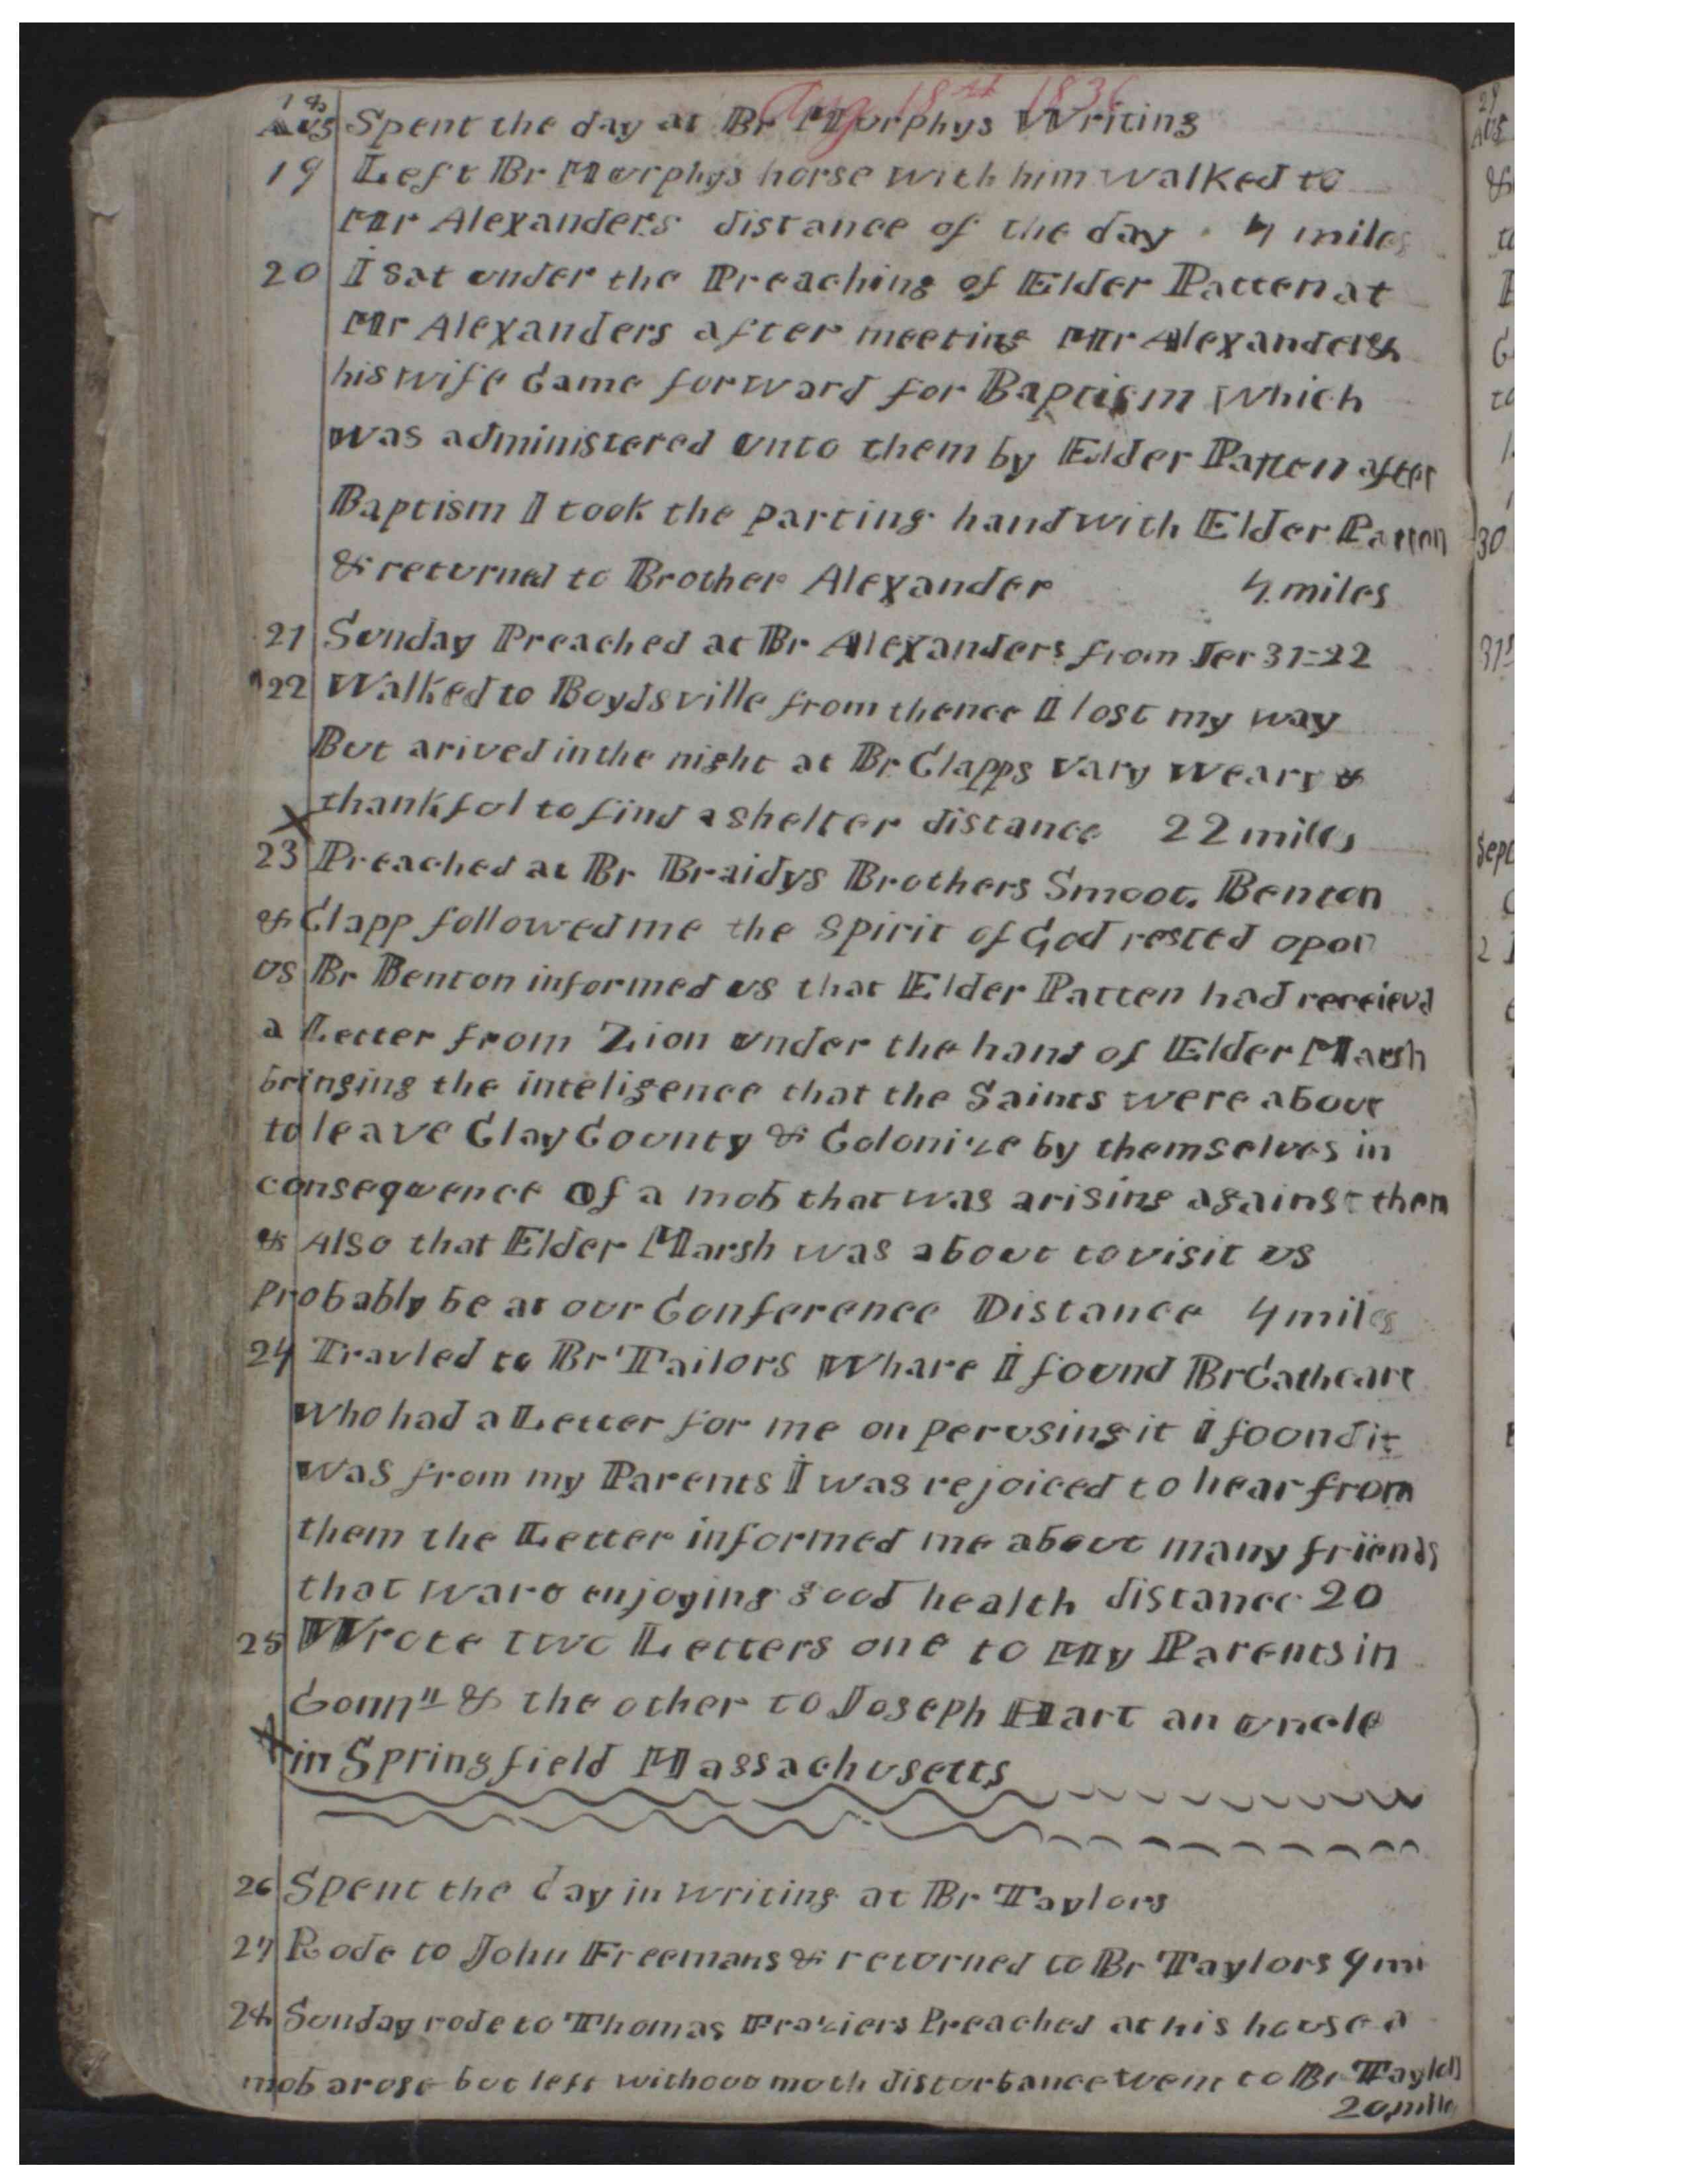 Aug 18th 1836
18
Aug Spent the day at Br Murphys Writing
19 Left Br Murphys horse with him walked to
Mr Alexanders distance of the day 4 miles
20 I sat under the Preaching of Elder Patten at
Mr Alexanders after meeting Mr Alexander &
his wife Came forward for Baptism Which
was administered unto them by Elder Patten after
Baptism I took the parting hand with Elder Patten
& returned to Brother Alexander 4 miles
21 Sunday Preached at Br Alexanders from Jer 31=22
22 Walked to Boydsville from thence I lost my way
But arived in the night at Br Clapps vary weary &
thankful to find a shelter distance 22 miles
23 Preached at Br Braidys Brothers Smoot, Benton
& Clapp followed me the Spirit of God rested upon
us Br Benton informed us that Elder Patten had receievd
a Letter from Zion under the hand of Elder Marsh
bringing the inteligence that the Saints were about
to leave Clay County & Colonize by themselves in
consequence of a mob that was arising against them
& Also that Elder Marsh was about to visit us
probably be at our Conference Distance 4 miles
24 Travled to Br Tailors Whare I found Br Cathcart
Who had a Letter for me on perusing it I found it
was from my Parents I was rejoiced to hear from
them the Letter informed me about many friends
that ware enjoying good health distance 20
25 Wrote two Letters one to My Parents in
Conn" & the other to Joseph Hart an uncle
in Springfield Massachusetts
26 Spent the day in writing at Br Taylors
27 Rode to John Freemans & returned to Br Taylors 9 mi
28 Sunday rode to Thomas Fraziers Preached at his house a
mob arose but left without much disturbance went to Br Taylors
20 mile